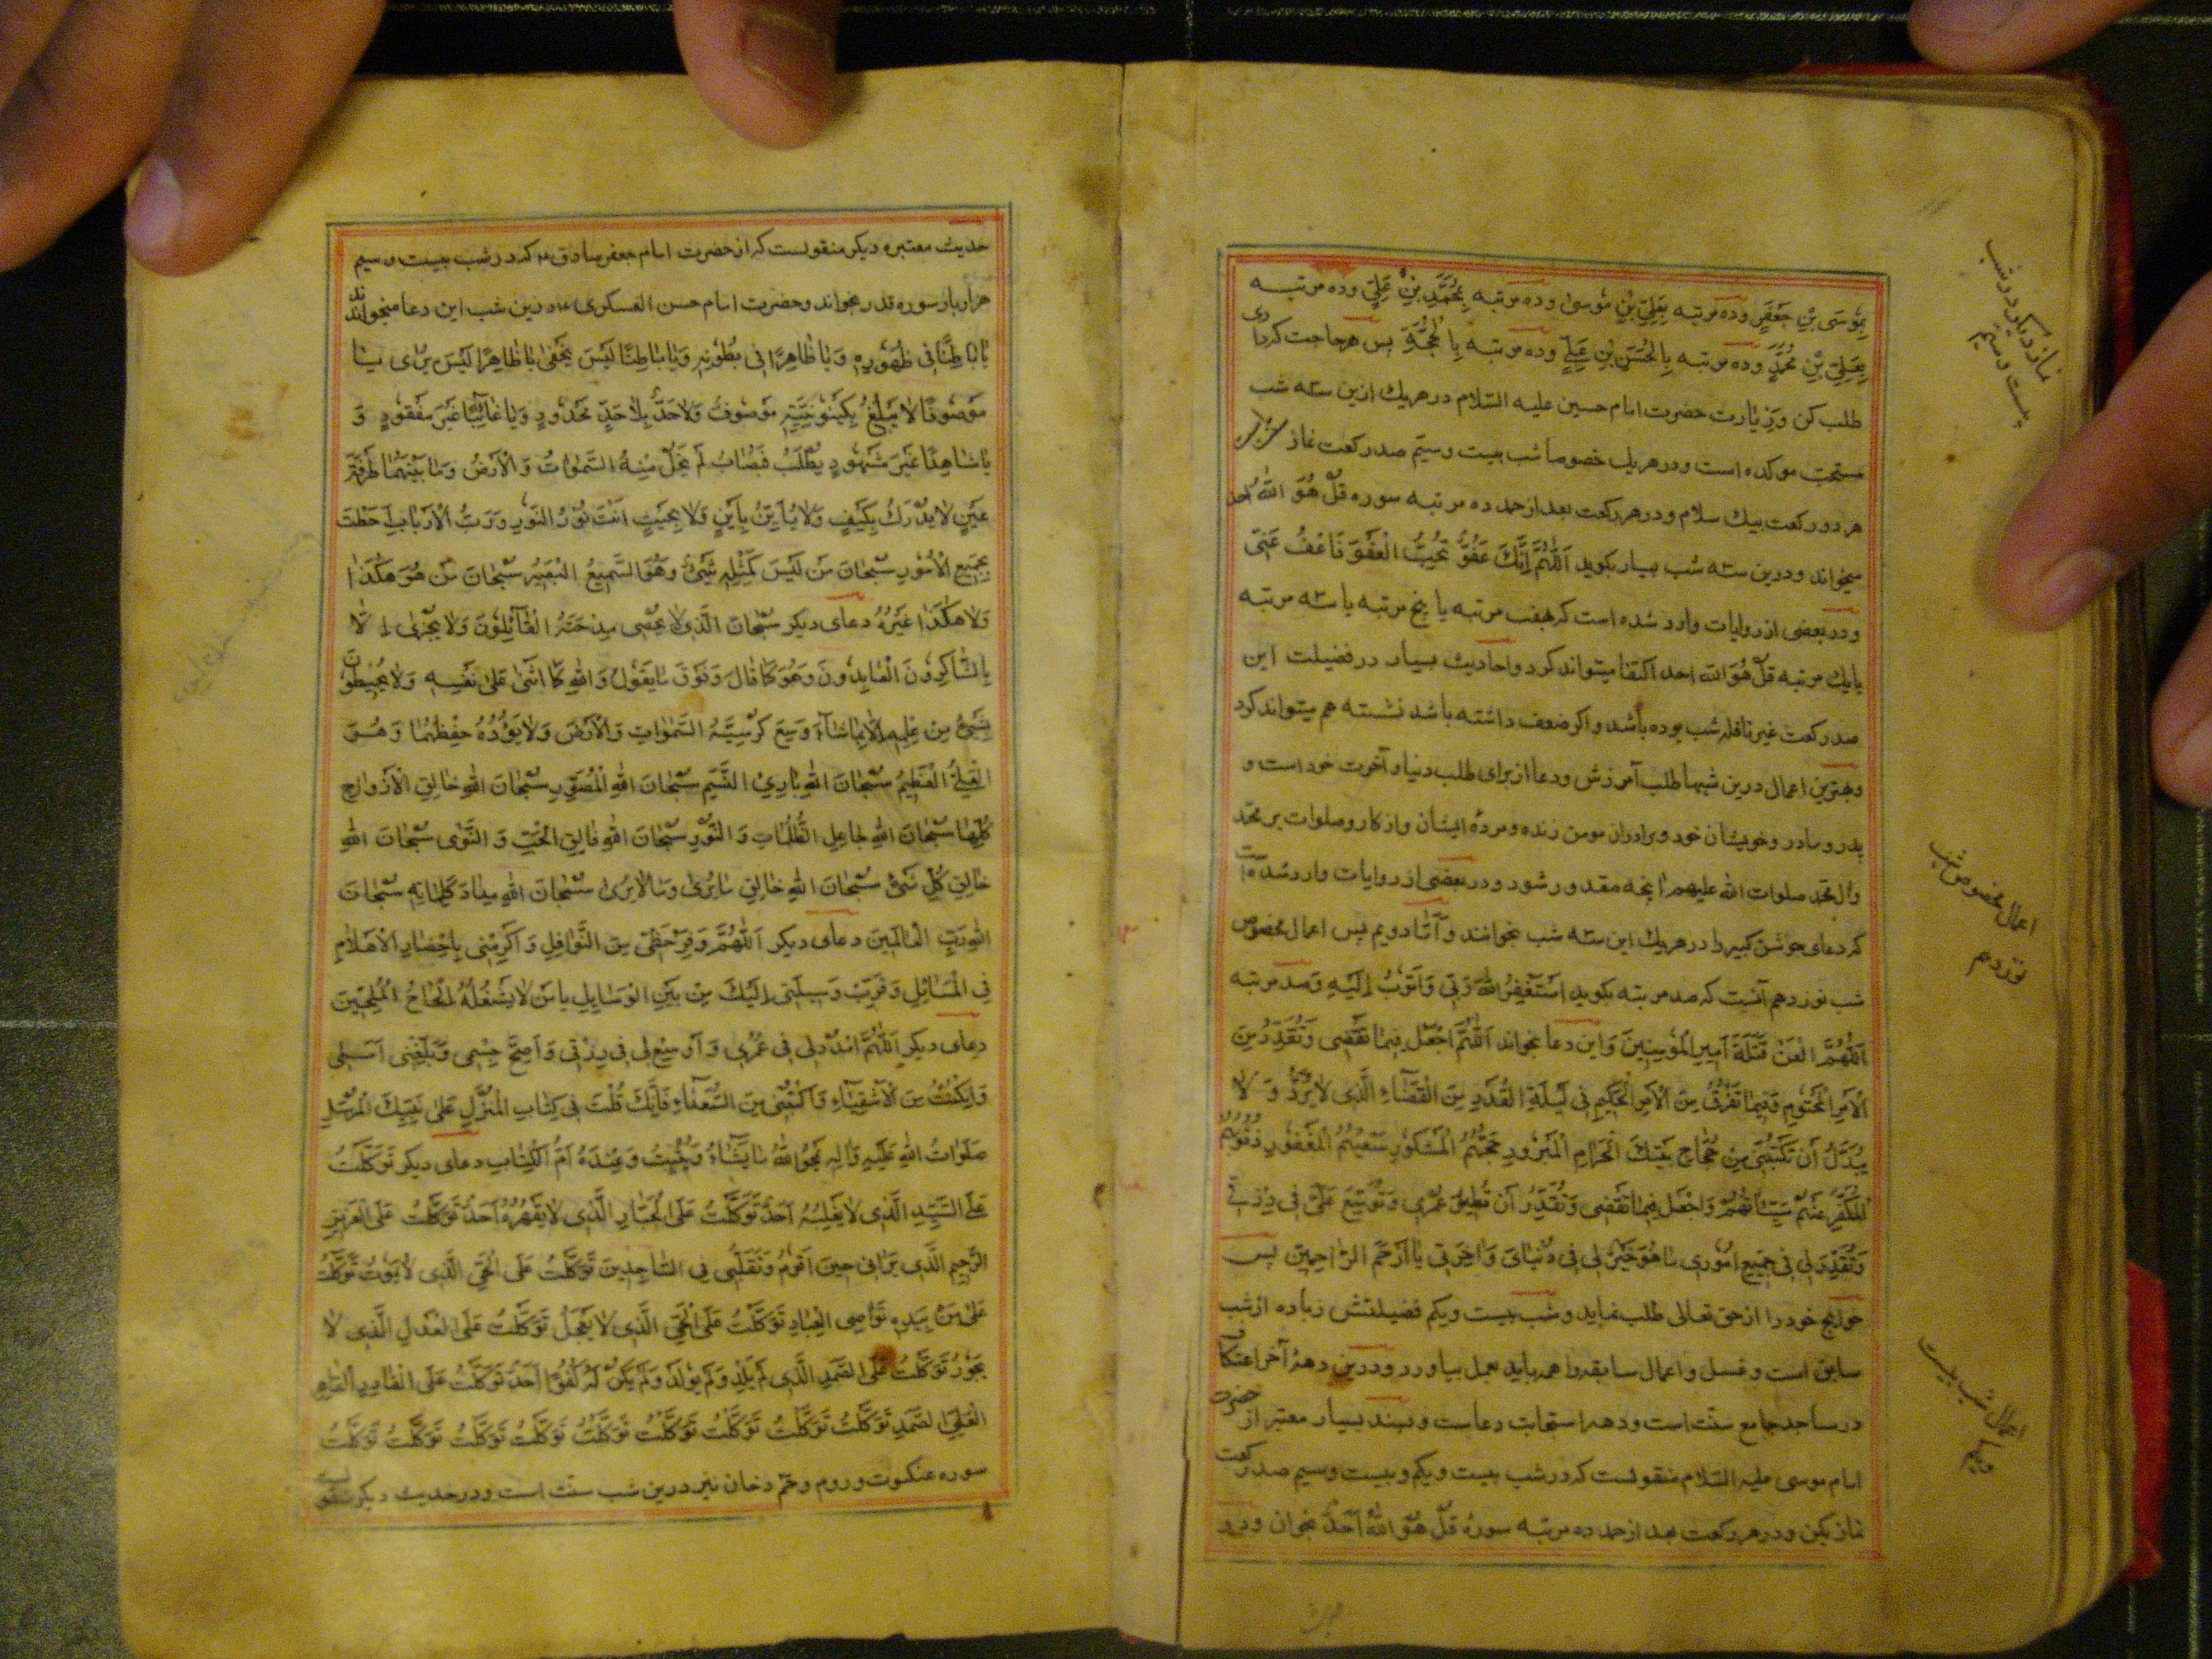 بِمُوسَى بْنِ جَعْفَرٍ وده مرتبه بِعَلِيِّ بْنِ مُوسىٰ وده مرتبه بِمُحَمَّدِ بْنِ عَلِيٍّ وده مرتبـه
بِعَلِيِّ بْنِ مُحَمَّدٍ وده مرتبه بِالْحَسَنِ بْنِ عَلِيٍّ وده مرتبـه بِالْحُجَّةِ پس هر حاجت که داری
طلب کن وزیارت حضرت امام حسین علیه السّلام در هریك ازین سه شب
مستحبّ موکده است ودر هریك خصوصا شب بیست وسیّم صد رکعت نماز
هر دو رکعت بیك سلام ودر هر رکعت بعد از حمد ده مرتبه سوره قُلْ هُوَ اللّٰهُ احد
میخواند ودرین سه شب بسیار بکوید اَللّٰهُمَّ إِنَّكَ عَفُوٌّ تُحِبُّ الْعَفْوَ فَاعْفُ عَنّی
ودر بعضی از روایات وارد شده است که هفت مرتبه یا پنج مرتبه یا سه مرتبـه
یا یك مرتبه قُلْ هُوَ الله احد اکتفا میتواند کرد واحادیث بسیار در فضیلت این
صد رکعت غیر نافله شب بوده باشد واکر ضعف داشته باشد نشسته هم میتواند کرد
وبهترین اعمال درین شبها طلب آمرزش ودعا از برای طلب دنیا وآخرت خود است و
پدر ومادر وخویشان خود وبرادران مومن زنده ومردهٔ ایشان واز کار وصلوات بر محمّد
وآل محمّد صلوات الله علیهم آنچه مقدور شود ودر بعضی از روایات وارد شده
که دعای جوشن کبیر را در هریك این سه شب بخوانند وامّا دویم پس اعمال مخصوص
شب نوزدهم آنست که صد مرتبه بکوید اَسْتَغْفِرُ اللهَ رَبّی وَاَتُوبُ اِلَیْهِ وصد مرتبه
اَللّٰهُمَّ الْعَنْ قَتَلَةَ اَمیرِ الْمُؤْمِنِینَ وَاین دعا بخواند اَللّٰهُمَّ اجْعَلْ فِیمَا تَقْضِی وَتُقَدِّرُ مِنَ
الْاَمْرِ الْمَحْتُومِ وَفِیمَا تَفْرُقُ مِنَ الْاَمْرِ الْحَکِیمِ فِی لَیْلَةِ الْقَدْرِ مِنَ الْقَضَاءِ الَّذِی لَا یُرَدُّ وَ لَا
یُبَدَّلُ اَنْ تَکْتُبَنِی مِنْ حُجَّاجِ بَیْتِكَ الْحَرَامِ الْمَبْرُورِ حَجُّهُمُ الْمَشْکُورِ سَعْیُهُمُ الْمَغْفُورِ ذُنُوبُهُمُ
الْمُکَفَّرِ عَنْهُمْ سَیِّئَاتُهُمْ وَاجْعَلْ فِیمَا تَقْضِی وَتُقَدِّرُ اَنْ تُطِیلَ عُمْرِی وَتُوَسِّعَ عَلَیَّ فِی رِزْقی
وَتُقَدِّرَ لِی فِی جَمِیعِ اُمُورِی مَا هُوَ خَیْرٌ لِی فِی دُنْیَایَ وَآخِرَتِی یَا اَرْحَمَ الرَّاحِمِینَ پس
حوایج خود را از حق تعالی طلب نماید وشب بیست ویکم فضیلتش زیاده از شب
سابق است وغسل واعمال سابقه را همه باید بعمل بیاورد ودرین دههٔ آخر اعتکاف
در مساجد جامع سنّت است ودهه استجابت دعاست وبسند بسیار معتبر از حضرت
امام موسی علیه السّلام منقولست که در شب بیست ویکم وبیست وسیم صد رکعت
نماز بکن ودر هر رکعت بعد از حمد ده مرتبه سورهٔ قُلْ هُوَ اللّٰهُ اَحَدٌ بخوان ودر
نماز دیکر در شب
بیست وسیم
اعمال مخصوص شب
نوزدهم
اعمال شب بیست
ویکم
حدیث معتبره دیکر منقولست که از حضرت امام جعفر صادق ع که در شب بیست وسیم
هزار بار سوره قدر بخواند وحضرت امام حسن العسکری ع درین شب این دعا میخواندند
یَا بَاطِنًا فِی ظُهُورِهِ وَیَا ظَاهِرًا فِی بُطُونِهِ وَیَا بَاطِنًا لَیْسَ یَخْفٰی یَا ظَاهِرًا لَیْسَ یُرٰی یَـا
مَوْصُوفًا لَا یَبْلُغُ بِکَیْنُونِیَّتِهِ مَوْصُوفٌ وَلَا حَدٌّ مَحْدُودٍ وَیَا غَائِبًا غَیْرَ مَفْقُودٍ وَ
یَا شَاهِدًا غَیْرَ مَشْهُودٍ یُطْلَبُ فَیُصَابُ لَمْ یَخْلُ مِنْهُ السَّمٰوَاتُ وَالْاَرْضُ وَمَا بَیْنَهُمَا طَرْفَةَ
عَیْنٍ لَا یُدْرَكُ بِکَیْفٍ وَلَا یُأَیَّنُ بِاَیْنٍ وَلَا بِحَیْثٍ اَنْتَ نُورُ النُّورِ وَرَبُّ الْاَرْبَابِ اَحَطْتَ
بِجَمِیعِ الْاُمُورِ سُبْحَانَ مَنْ لَیْسَ کَمِثْلِهِ شَیْءٌ وَهُوَ السَّمِیعُ الْبَصِیرُ سُبْحَانَ مَنْ هُوَ هٰکَذَا
وَلَا هٰکَذَا غَیْرُهُ دعای دیکر سُبْحَانَ الَّذِی لَا یُحْصِی مِدْحَتَهُ الْقَائِلُونَ وَلَا یَجْزِی
الشَّاکِرُونَ الْعَابِدُونَ وَهُوَ کَمَا قَالَ وَفَوْقَ مَا یَقُولُ وَاللهُ کَمَا اَثْنٰی عَلٰی نَفْسِهِ وَلَا یُحِیطُونَ
بِشَیْءٍ مِنْ عِلْمِهِ اِلَّا بِمَا شَاءَ وَسِعَ کُرْسِیُّهُ السَّمٰوَاتِ وَالْاَرْضَ وَلَا یَؤُدُهُ حِفْظُهُمَا وَهُـوَ
الْعَلِیُّ الْعَظِیمُ سُبْحَانَ اللهِ بَارِئِ النَّسَمِ سُبْحَانَ اللهِ الْمُصَوِّرِ سُبْحَانَ اللهِ خَالِقِ الْاَزْوَاجِ
کُلِّهَا سُبْحَانَ اللهِ جَاعِلِ الظُّلُمَاتِ وَالنُّورِ سُبْحَانَ اللهِ فَالِقِ الْحَبِّ وَ النَّوٰی سُبْحَانَ اللهِ
خَالِقِ کُلِّ شَیْءٍ سُبْحَانَ اللهِ خَالِقِ مَا یُرٰی وَمَا لَا یُرٰی سُبْحَانَ اللهِ مِدَادَ کَلِمَاتِهِ سُبْحَانَ
اللهِ رَبِّ الْعَالَمِینَ دعای دیکر اَللّٰهُمَّ وَفِّرْ حَظِّی مِنَ النَّوَافِلِ وَ اَکْرِمْنِی بِاِحْضَارِ الْاَحْلَامِ
فِی الْمَسَائِلِ وَقَرِّبْ وَسِیلَتِی اِلَیْكَ مِنْ بَیْنِ الْوَسَایِلِ یَا مَنْ لَا یَشْغَلُهُ اِلْحَاحُ الْمُلِحِّینَ
دعای دیکر اَللّٰهُمَّ امْدُدْ لِی فِی عُمْرِی وَ اَوْسِعْ لِی فِی رِزْقِی وَ اَصِحَّ جِسْمِی وَبَلِّغْنِی اَمَـلِی
وَاِنْ کُنْتُ مِنَ الْاَشْقِیَاءِ فَاکْتُبْنِی مِنَ السُّعَدَاءِ فَاِنَّكَ قُلْتَ فِی کِتَابِ الْمُنْزَلِ عَلٰی نَبِیِّكَ الْمُرْسَلِ
صَلَوَاتُ اللهِ عَلَیْهِ وَآلِهِ یَمْحُو اللهُ مَا یَشَاءُ وَیُثْبِتُ وَعِنْدَهُ اُمُّ الْکِتَابِ دعای دیکر تَوَکَّلْتُ
عَلَی السَّیِّدِ الَّذِی لَا یَغْلِبُهُ اَحَدٌ تَوَکَّلْتُ عَلَی الْجَبَّارِ الَّذِی لَا یَقْهَرُهُ اَحَدٌ تَوَکَّلْتُ عَلَی الْعَزِیزِ
الرَّحِیمِ الَّذِی یَرَانِی حِینَ اَقُومُ وَتَقَلُّبِی فِی السَّاجِدِینَ تَوَکَّلْتُ عَلَی الْحَیِّ الَّذِی لَا یَمُوتُ تَوَکَّلْتُ
عَلٰی مَنْ بِیَدِهِ نَوَاصِی الْعِبَادِ تَوَکَّلْتُ عَلَی الَّذِی لَا یَعْجَلُ تَوَکَّلْتُ عَلَی الْعَدْلِ الَّذِی لَا
یَجُورُ تَوَکَّلْتُ عَلَی الصَّمَدِ الَّذِی لَمْ یَلِدْ وَلَمْ یُولَدْ وَلَمْ یَکُنْ لَهُ کُفُوًا اَحَدٌ تَوَکَّلْتُ عَلَی الْقَادِرِ الْقَاهِرِ
الْعَلِیِّ الصَّمَدِ تَوَکَّلْتُ تَوَکَّلْتُ تَوَکَّلْتُ تَوَکَّلْتُ تَوَکَّلْتُ تَوَکَّلْتُ تَوَکَّلْتُ تَوَکَّلْتُ تَوَکَّلْتُ
سوره عنکبوت وروم وحم دخان نیز درین شب سنّت است ودر حدیث دیکر